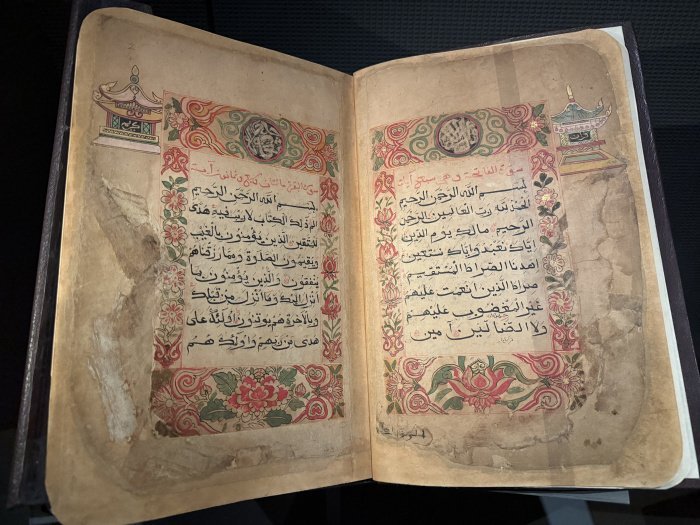 سورة الفاتحة وهي سبع آيات
بسم الله الرحمن الرحيم
الحمد لله رب العالمين الرحمن
الرحيم مالك يوم الدين
اياك نعبد واياك نستعين
اهدنا الصراط المستقيم
صراط الذين انعمت عليهم
غير المغضوب عليهم
ولا الضالين آمين
سورة البقرة مائتان وسبع وثمانون آية
بسم الله الرحمن الرحيم
الم ذلك الكتاب لا ريب فيه هدى
للمتقين الذين يؤمنون بالغيب
ويقيمون الصلوة ومما رزقناهم
ينفقون والذين يؤمنون بما
انزل اليك وما انزل من قبلك
وبالآخرة هم يوقنون اولئك على
هدى من ربهم واولئك هم